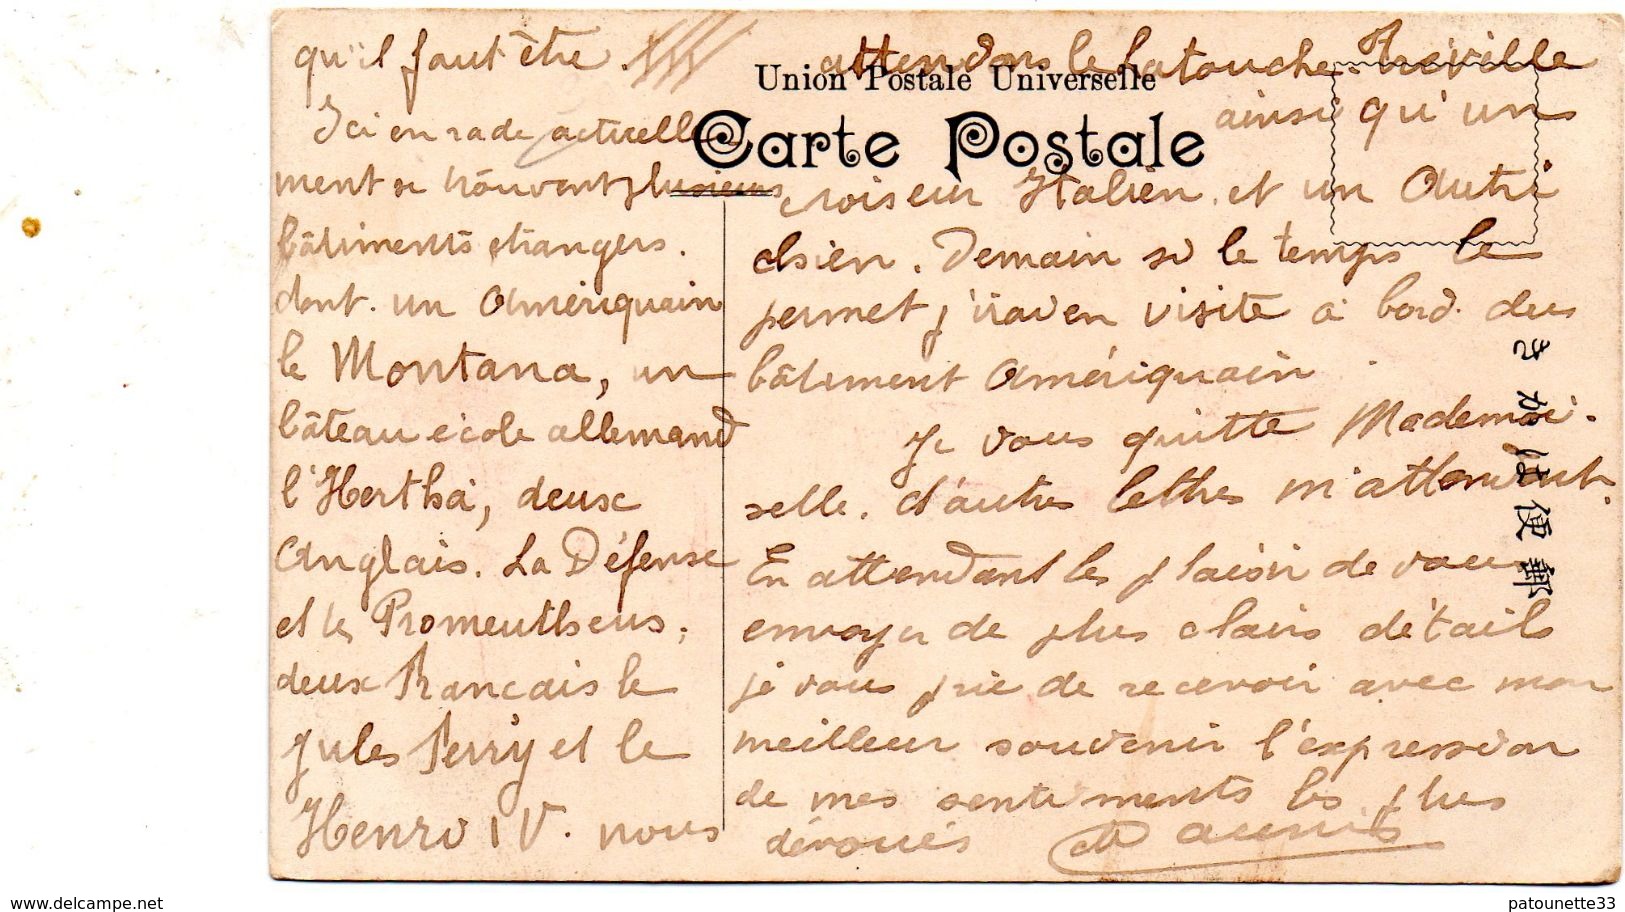 qu'il faut être.
Ici en rade actuelle
ment se trouvent plusieurs
bâtiments etrangers.
dont un Amériquain
le Montana, un
bâteau école allemand
l'Hertha, deux
Anglais. La Défense
et le Promeutheus,
deux Francais le
Jules Ferry et le
Henri IV. nous
attendons le Latouche-Tréville
Union Postale Universelle
Carte Postale
ainsi qu'un
croiseur Italien et un Autri
chien. Demain si le temps le
permet j'irai en visite à bord du
bâtiment Amériquain
Je vous quitte Mademoi-
selle. d'autres lettres m'attendent.
En attendant le plaisir de vous
envoyer de plus clairs détails
je vous prie de recevoir avec mon
meilleur souvenir l'expression
de mes sentiments les plus
dévoués
きかは便郵
www.delcampe.net
patounette33